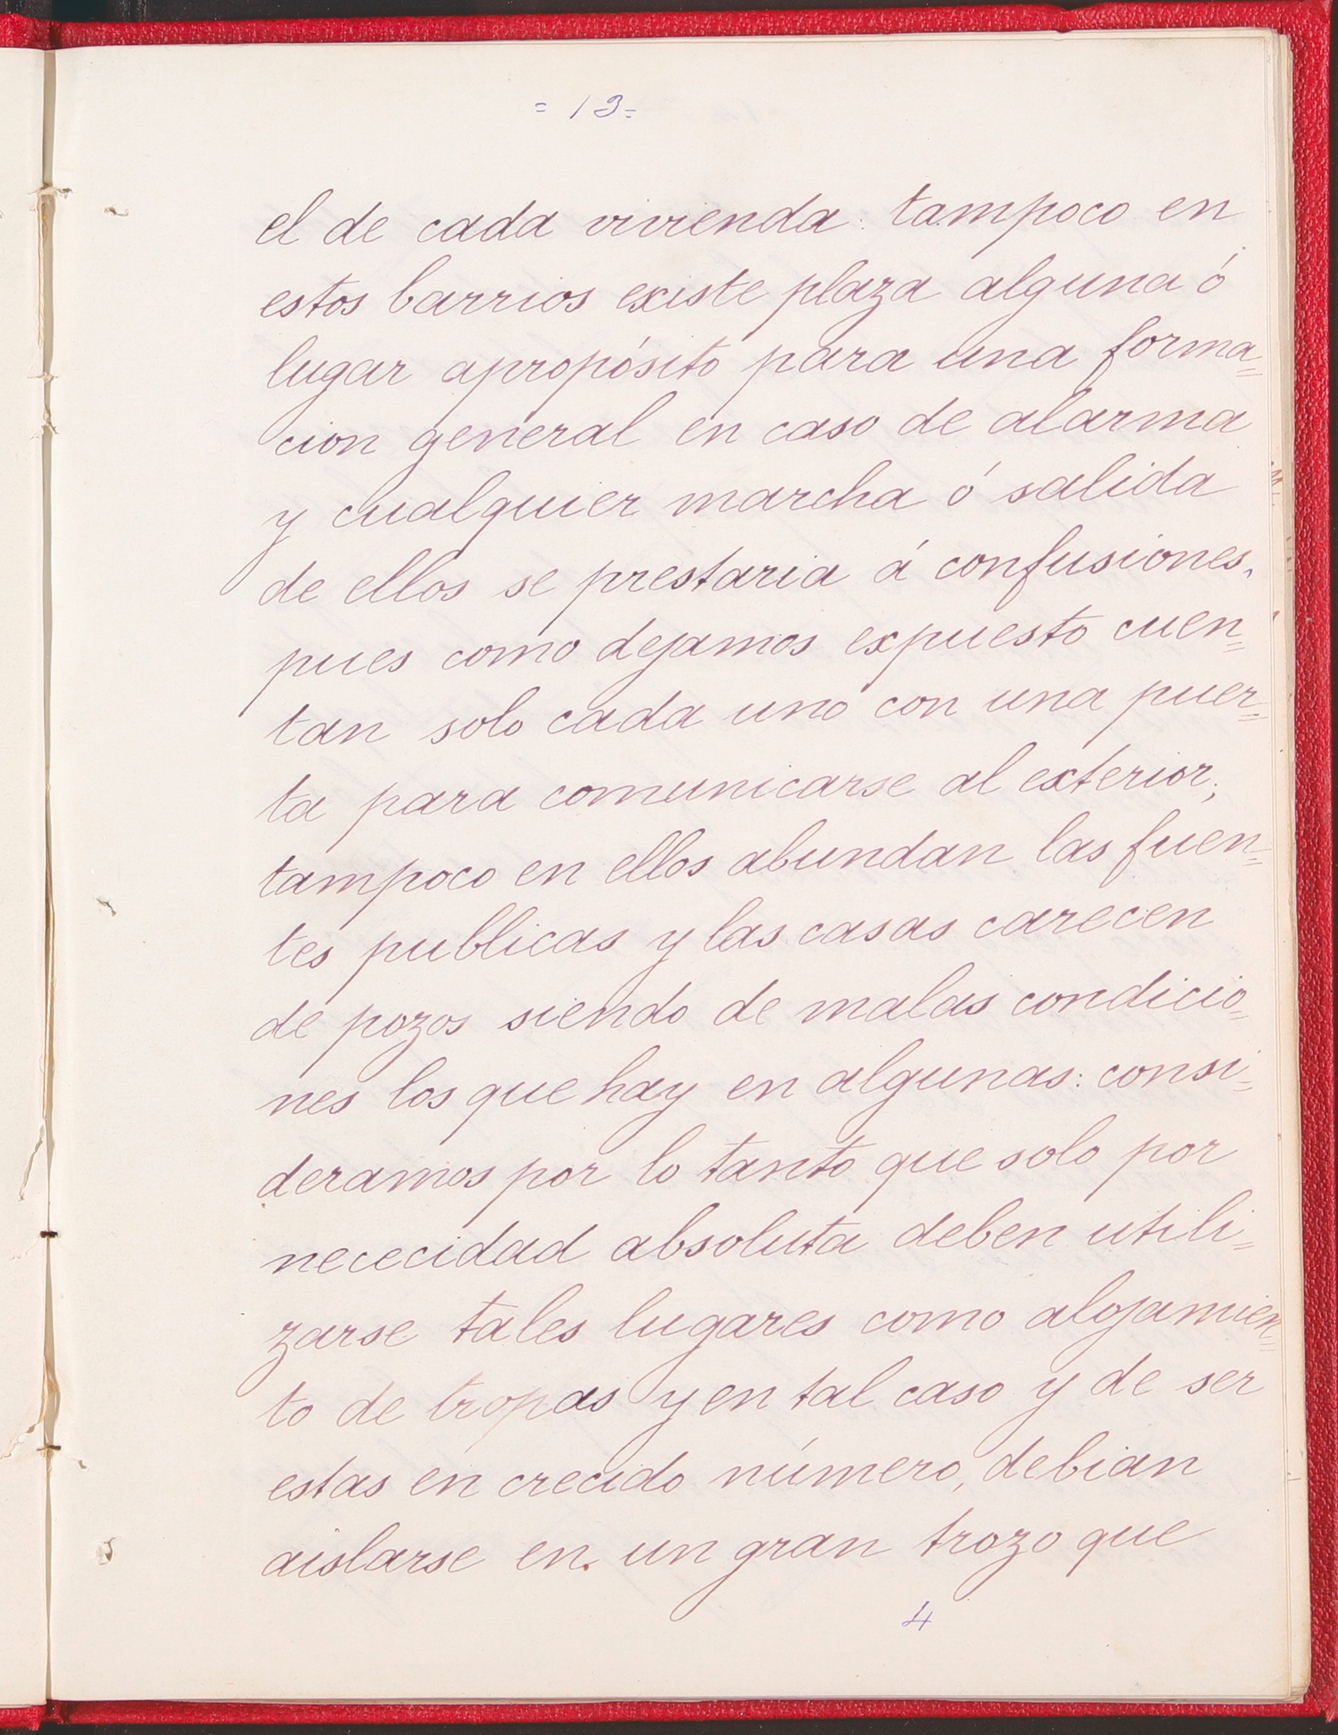 = 13 =
el de cada vivienda: tampoco en
estos barrios existe plaza alguna ó
lugar apropósito para una forma=
cion general en caso de alarma
y cualquier marcha ó salida
de ellos se prestaria á confusiones,
pues como dejamos expuesto cuen=
tan solo cada uno con una puer=
ta para comunicarse al exterior;
tampoco en ellos abundan las fuen=
tes publicas y las casas carecen
de pozos siendo de malas condicio=
nes los que hay en algunas: consi=
deramos por lo tanto que solo por
nececidad absoluta deben utili=
zarse tales lugares como alojamien=
to de tropas y en tal caso y de ser
estas en crecido número, debian
aislarse en. un gran trozo que
4